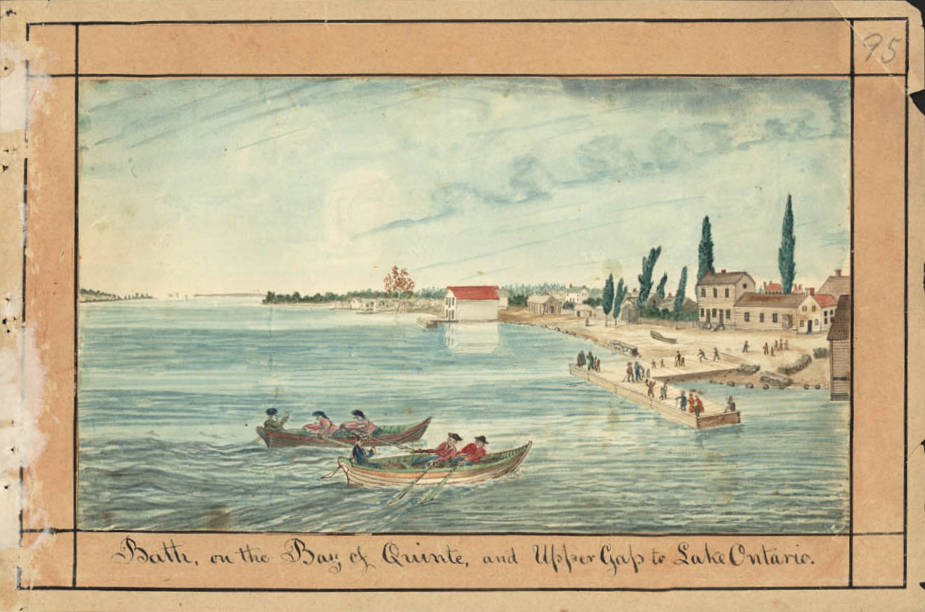 95
Bath, on the Bay of Quinte, and Upper Gap to Lake Ontario.